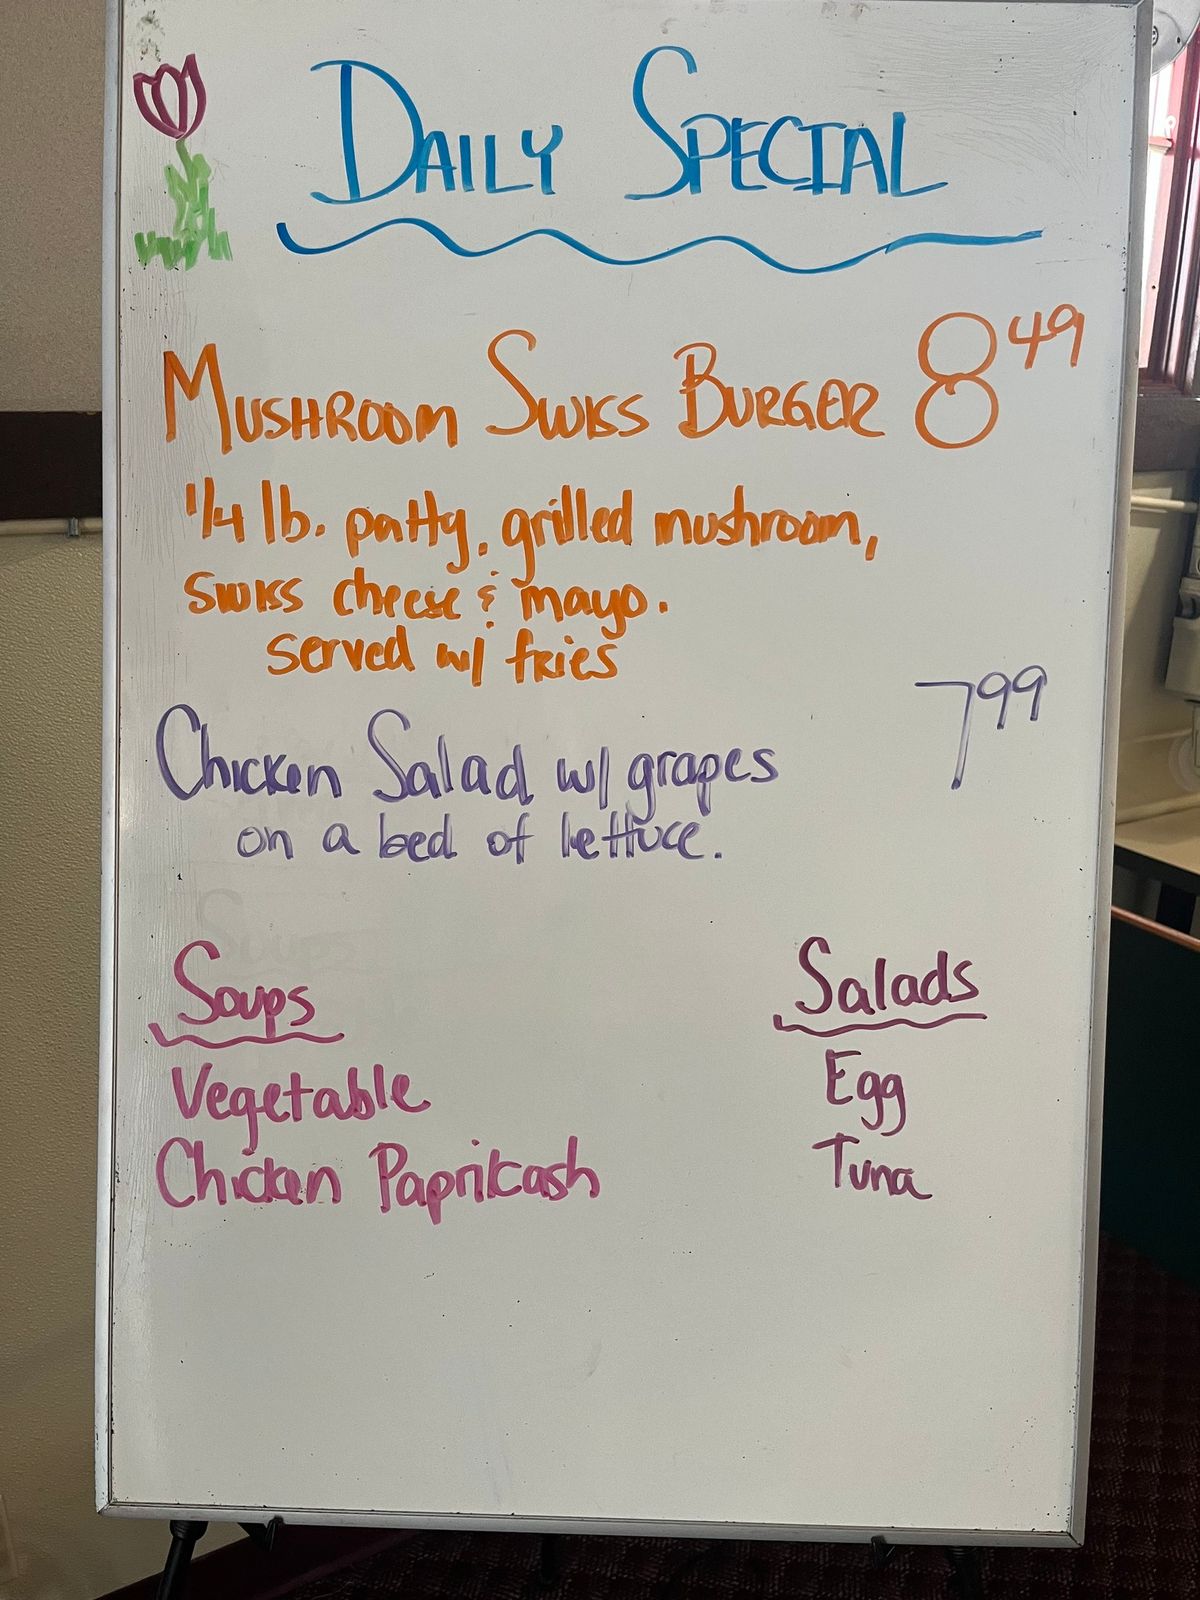 DAILY SPECIAL
MUSHROOM SWISS BURGER 8 49
1/4 lb. patty, grilled mushroom,
swiss cheese & mayo.
served w/ fries
Chicken Salad w/ grapes 7 99
on a bed of lettuce.
Soups
Vegetable
Chicken Paprikash
Salads
Egg
Tuna